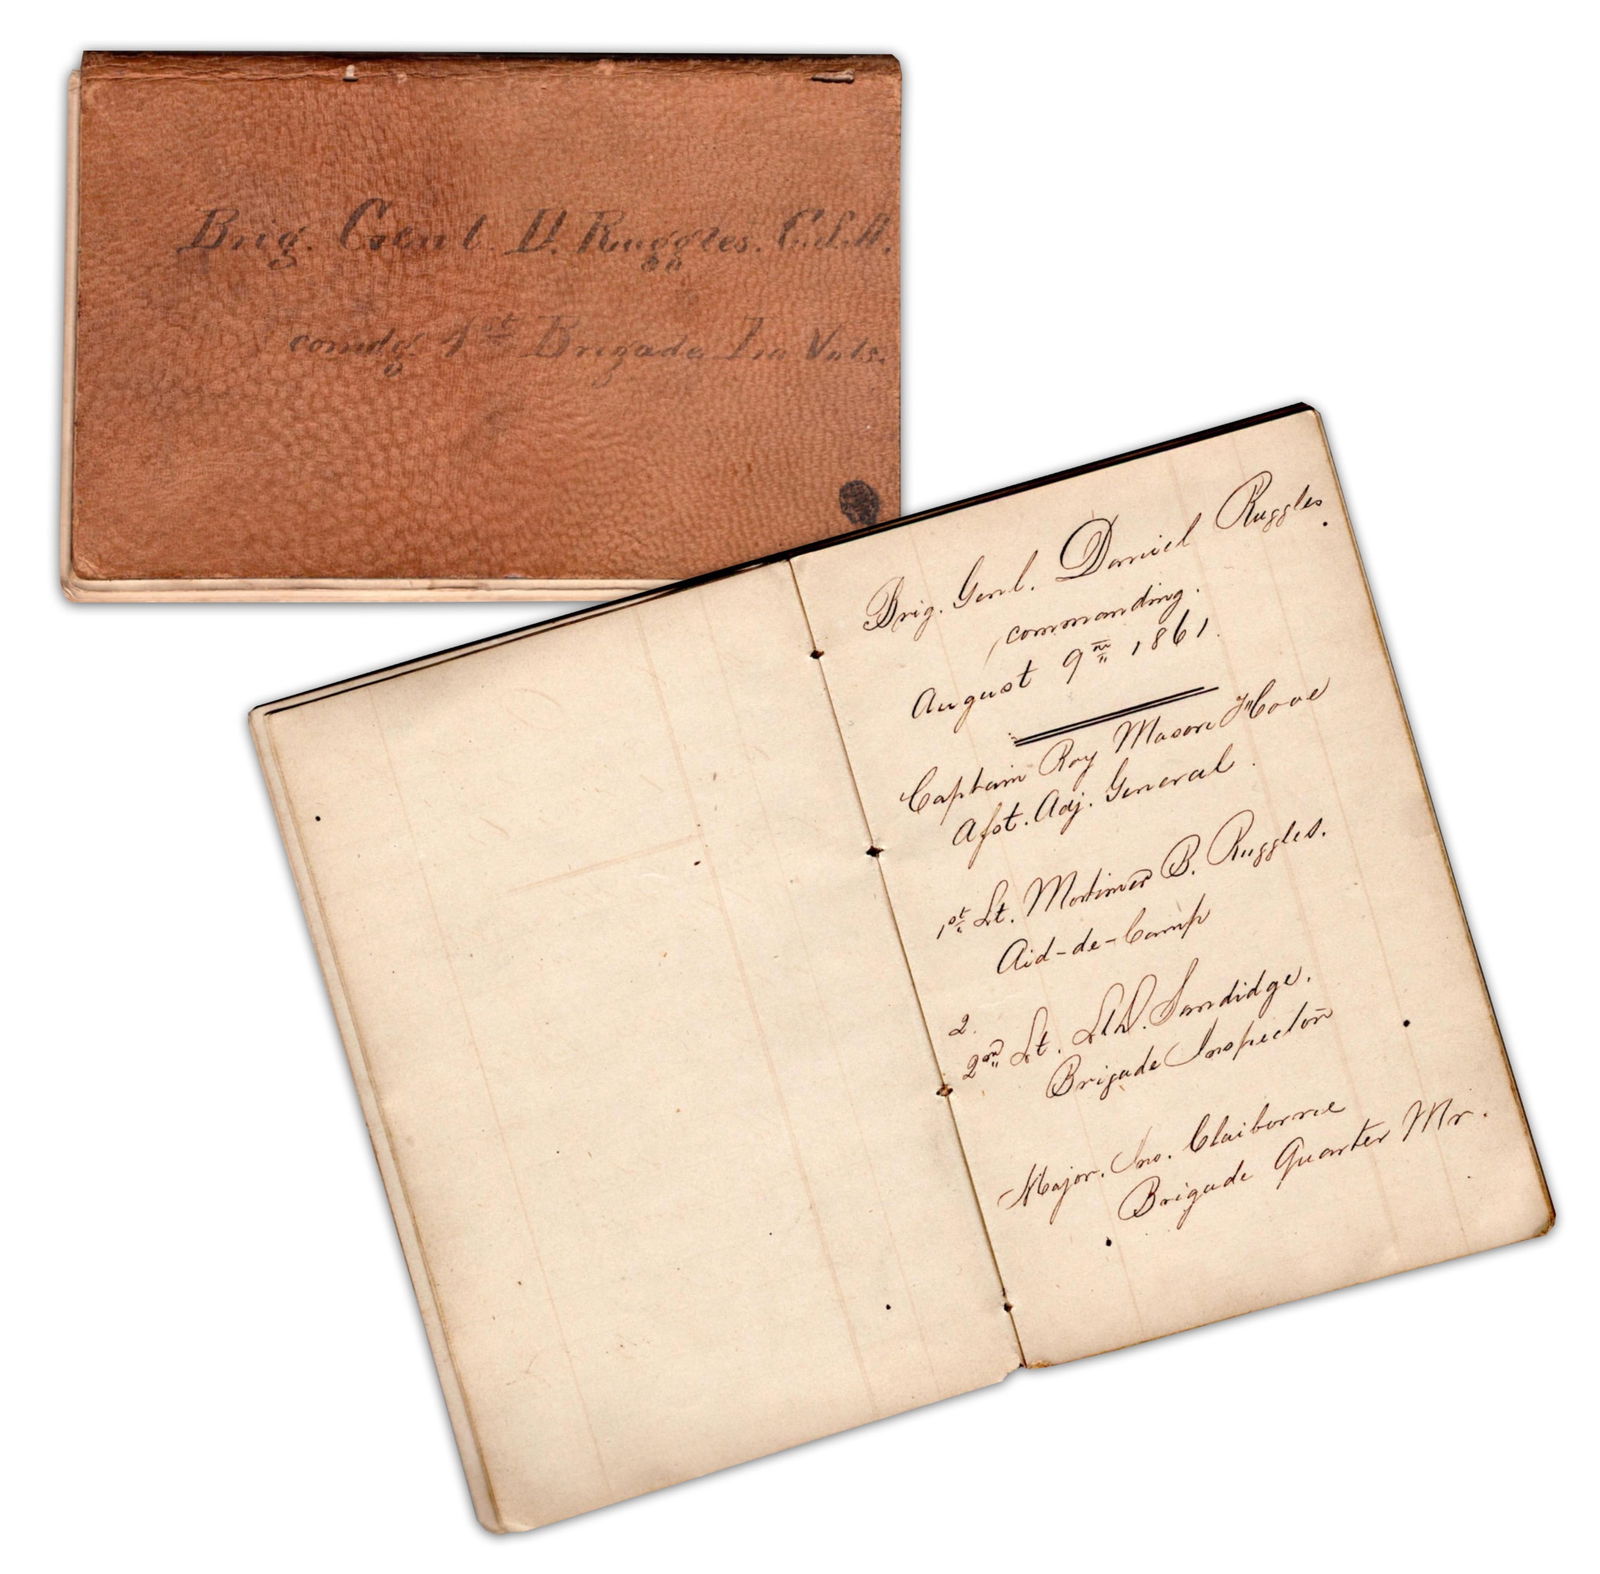 Brig. Genl. D. Ruggles. C.S.A.
comdg. 1st Brigade Vols.
Brig. Genl. Daniel Ruggles.
commanding.
August 9th 1861.
Captain Roy Mason Hooe
Asst. Adj. General.
1st Lt. Mortimer B. Ruggles.
Aid-de-Camp
2.
2nd Lt. L.D. Sandidge.
Brigade Inspector
Major. Jno. Claiborne
Brigade Quarter Mr.